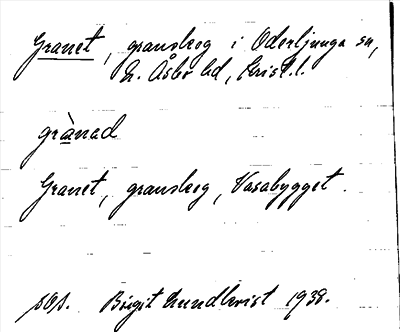 Granet, granskog i Oderljunga sn,
N. Åsbo hd, Krist. l.
grànad
Granet, granskog, Vasabygget.
sOs. Birgit Lundkvist 1938.